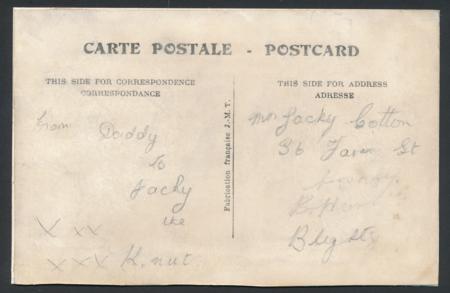 CARTE POSTALE - POSTCARD
THIS SIDE FOR CORRESPONDENCE
CORRESPONDANCE
from Daddy
to
Jacky
the
K.nut
x xx
x x x
Fabrication française J.M.T.
THIS SIDE FOR ADDRESS
ADRESSE
Mr Jacky Cotton
36 Farm St
Blighty